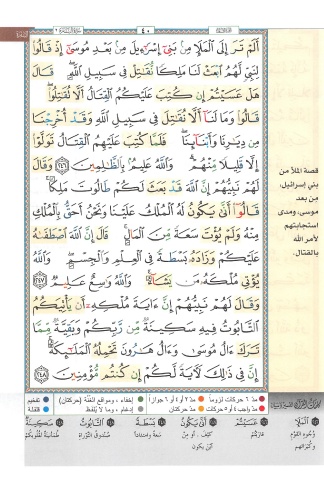 ٤٠
أَلَمْ تَرَ إِلَى ٱلْمَلَإِ مِنۢ بَنِىٓ إِسْرَٰٓءِيلَ مِنۢ بَعْدِ مُوسَىٰٓ إِذْ قَالُوا۟
لِنَبِىٍّ لَّهُمُ ٱبْعَثْ لَنَا مَلِكًا نُّقَٰتِلْ فِى سَبِيلِ ٱللَّهِ ۖ قَالَ
هَلْ عَسَيْتُمْ إِن كُتِبَ عَلَيْكُمُ ٱلْقِتَالُ أَلَّا تُقَٰتِلُوا۟ ۖ
قَالُوا۟ وَمَا لَنَآ أَلَّا نُقَٰتِلَ فِى سَبِيلِ ٱللَّهِ وَقَدْ أُخْرِجْنَا
مِن دِيَٰرِنَا وَأَبْنَآئِنَا ۖ فَلَمَّا كُتِبَ عَلَيْهِمُ ٱلْقِتَالُ تَوَلَّوْا۟
إِلَّا قَلِيلًا مِّنْهُمْ ۗ وَٱللَّهُ عَلِيمٌۢ بِٱلظَّٰلِمِينَ ٢٤٦ وَقَالَ
لَهُمْ نَبِيُّهُمْ إِنَّ ٱللَّهَ قَدْ بَعَثَ لَكُمْ طَالُوتَ مَلِكًا ۚ
قَالُوٓا۟ أَنَّىٰ يَكُونُ لَهُ ٱلْمُلْكُ عَلَيْنَا وَنَحْنُ أَحَقُّ بِٱلْمُلْكِ
مِنْهُ وَلَمْ يُؤْتَ سَعَةً مِّنَ ٱلْمَالِ ۚ قَالَ إِنَّ ٱللَّهَ ٱصْطَفَىٰهُ
عَلَيْكُمْ وَزَادَهُۥ بَسْطَةً فِى ٱلْعِلْمِ وَٱلْجِسْمِ ۖ وَٱللَّهُ
يُؤْتِى مُلْكَهُۥ مَن يَشَآءُ ۚ وَٱللَّهُ وَٰسِعٌ عَلِيمٌ ٢٤٧
وَقَالَ لَهُمْ نَبِيُّهُمْ إِنَّ ءَايَةَ مُلْكِهِۦٓ أَن يَأْتِيَكُمُ
ٱلتَّابُوتُ فِيهِ سَكِينَةٌ مِّن رَّبِّكُمْ وَبَقِيَّةٌ مِّمَّا
تَرَكَ ءَالُ مُوسَىٰ وَءَالُ هَٰرُونَ تَحْمِلُهُ ٱلْمَلَٰٓئِكَةُ ۚ
إِنَّ فِى ذَٰلِكَ لَءَايَةً لَّكُمْ إِن كُنتُم مُّؤْمِنِينَ ٢٤٨
قصة الملأ من
بني إسرائيل،
من بعد
موسى، ومدى
استجابتهم
لأمر الله
بالقتال.
مدّ ٦ حركات لزوماً
مدّ ٢ أو ٤ أو ٦ جوازاً
إخفاء ، ومواقع الغُنَّة (حركتان)
تفخيم
مدّ حركتان
إدغام ، وما لا يُلفظ
قلقلة